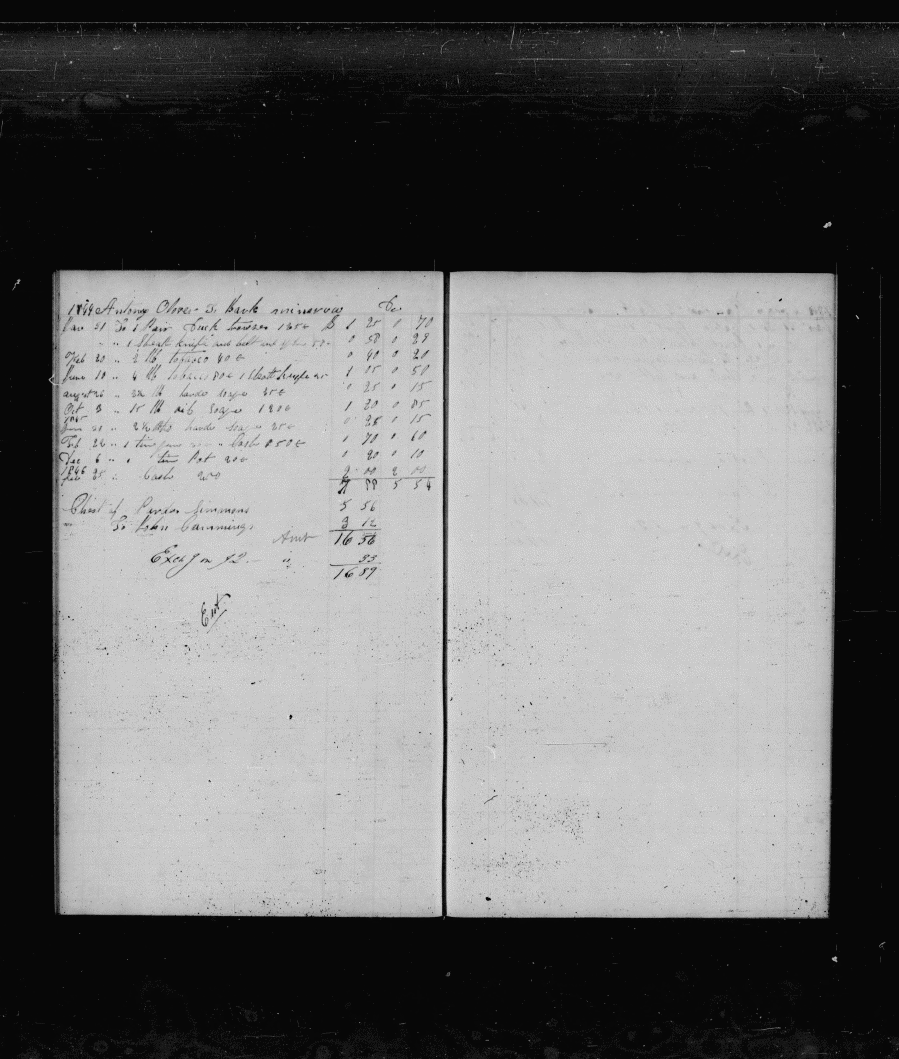 1844 Antone Oliver To Bark minerva Dr
Jan 21 To 1 Pair Duck trowsers 125¢ $ 1 25 0 70
" " 1 Sheath Knife and belt and 50 0 50 0 29
Feb 20 " 2 lb tobacco 40¢ 0 40 0 20
June 10 " 4 lb tobacco 80¢ 1 Sheath Knife 25 1 05 0 50
august 26 " lb hards soape 25¢ 0 25 0 15
Oct 3 " 15 lb soape 120¢ 1 20 0 85
1845
June 21 " 2½ lbs hards soape 25¢ 0 25 0 15
Feb 22 " 1 tin pan 20 " Cash 150¢ 1 70 0 60
Dec 6 " 1 tin Pot 20¢ 0 20 0 10
1846
25 " Cash 200 2 00 2 00
7 88 5 54
Chest of Simmons 5 56
" To John Cammings 3 12
Amt 16 56
Exchg on $2 " 33
16 89
Ent